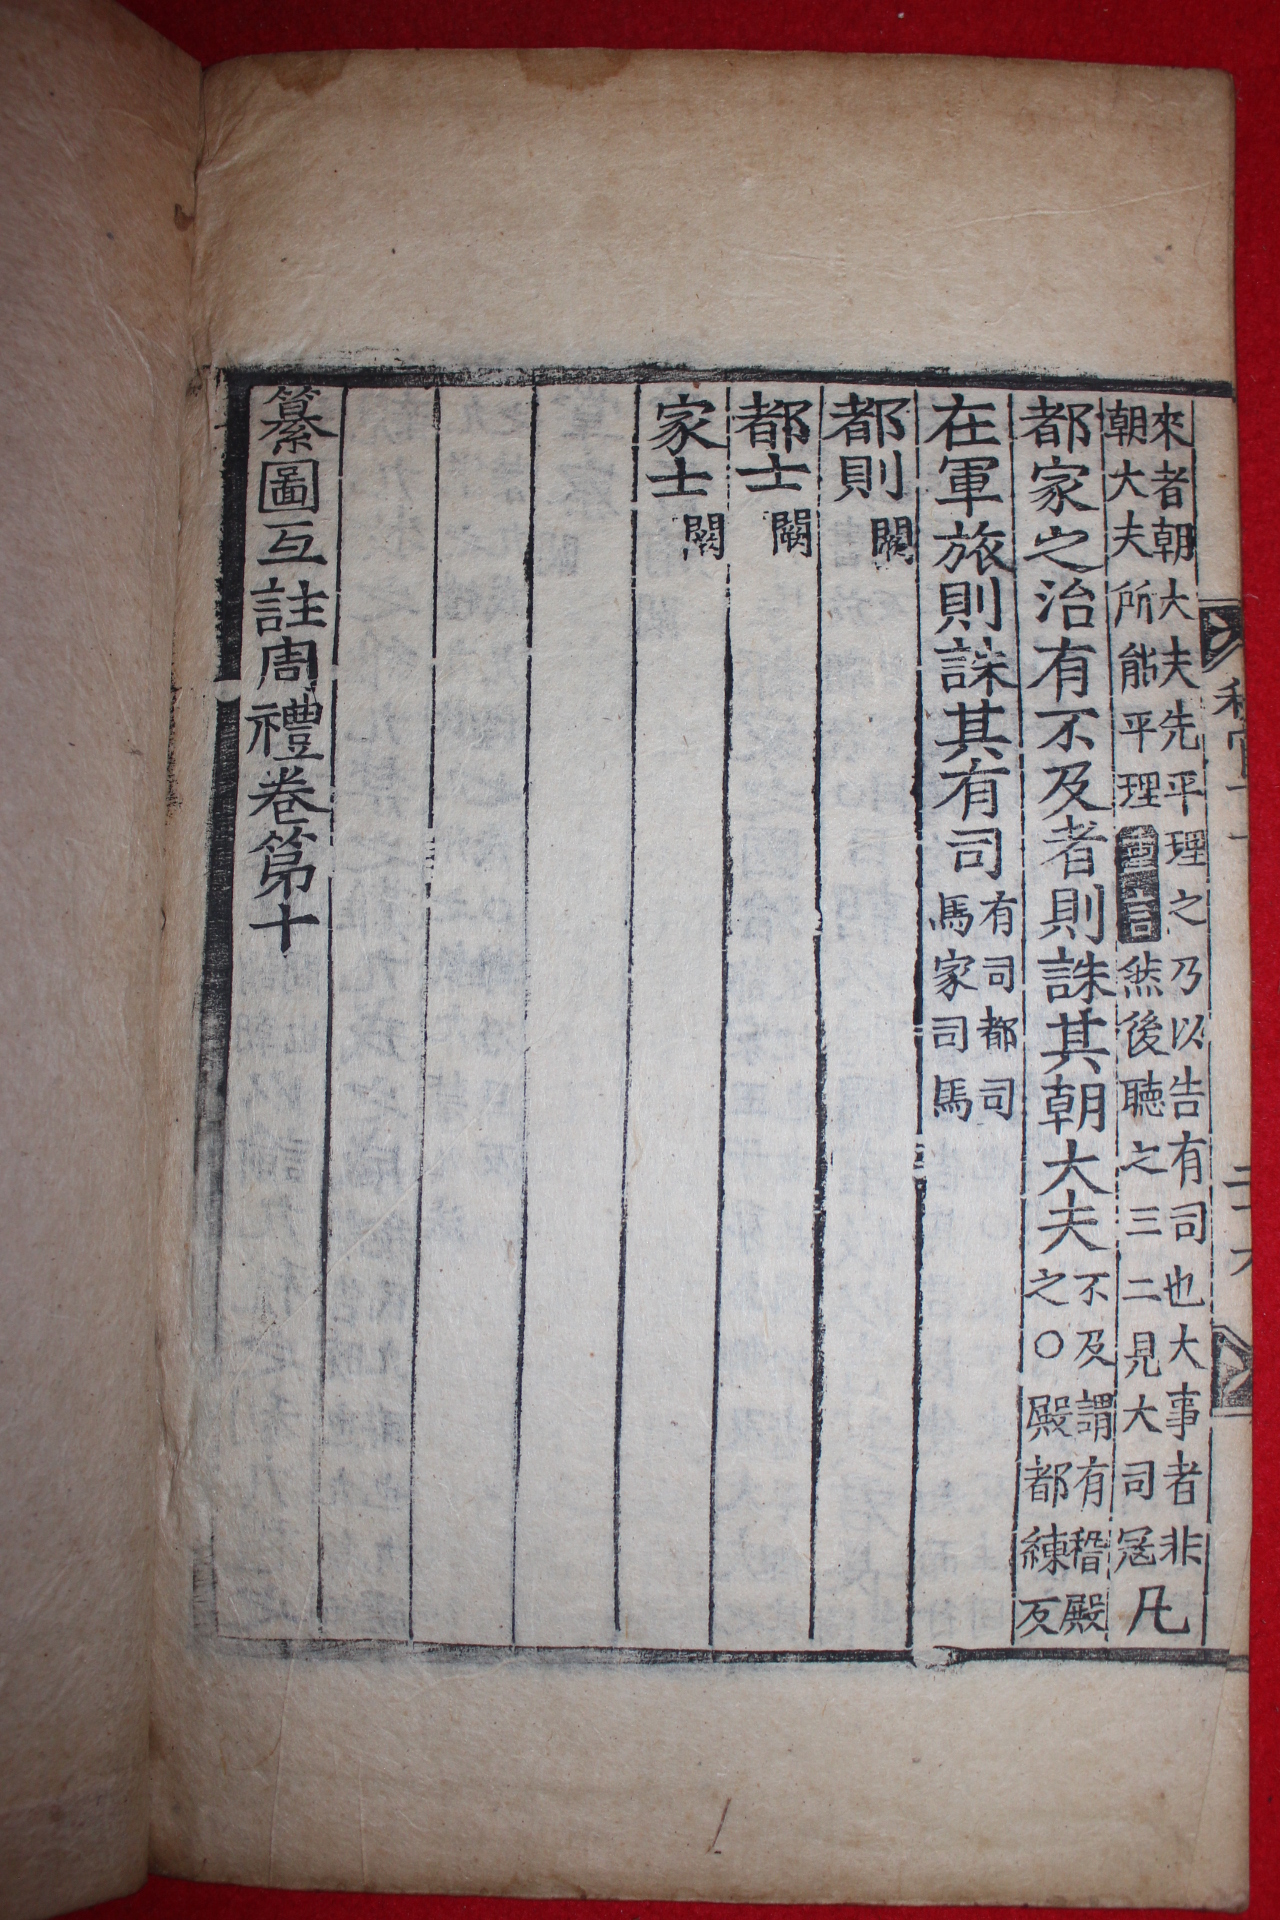 來者朝大夫先平理之乃以告有司也大事者非
朝大夫所能平理重言然後聽之三二見大司冦凡
都家之治有不及者則誅其朝大夫不及謂有稽殿
之〇殿都練反
在軍旅則誅其有司有司都司
馬家司馬
都則闕
都士闕
家士闕
纂圖互註周禮卷第十